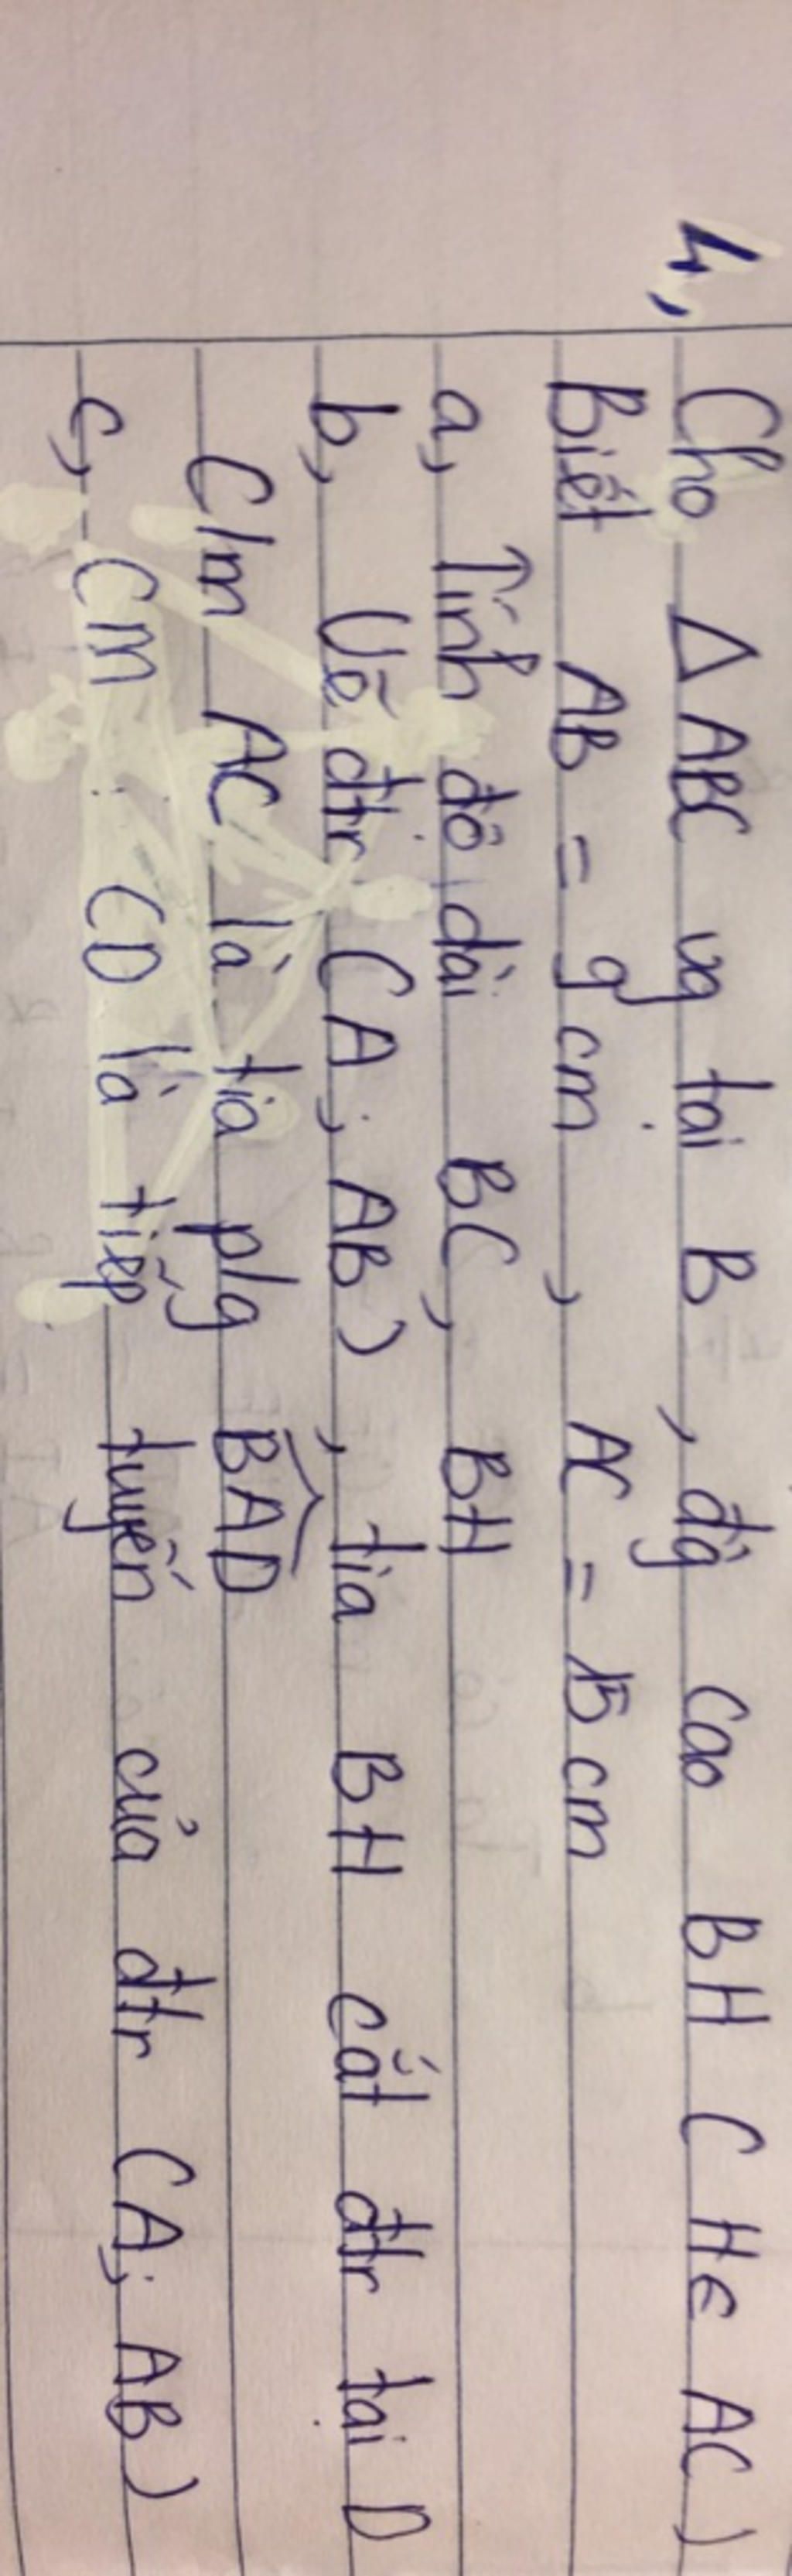 4, Cho △ABC vg tại B, đg cao BH (H∈AC)
Biết AB = 9cm, AC = 15cm
a, Tính độ dài BC, BH
b, Vẽ đtr (A; AB), tia BH cắt đtr tại D
C/m AC là tia p/g BAD
c, Cm: CD là tiếp tuyến của đtr (A; AB)